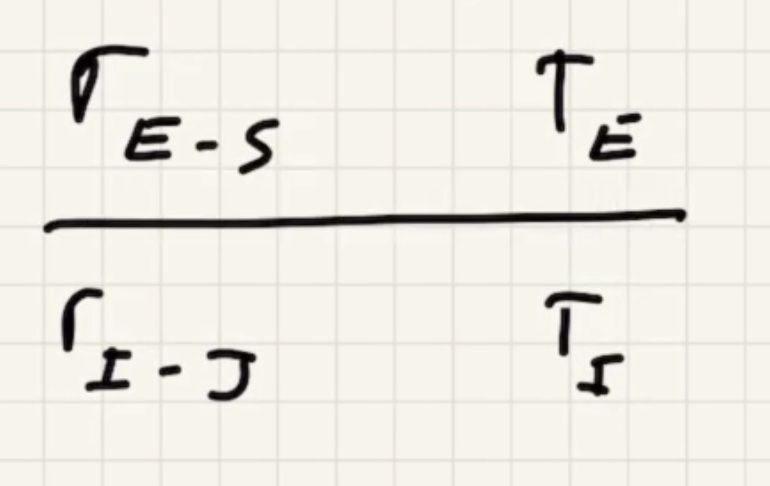 r E-S T E
r I-J T I